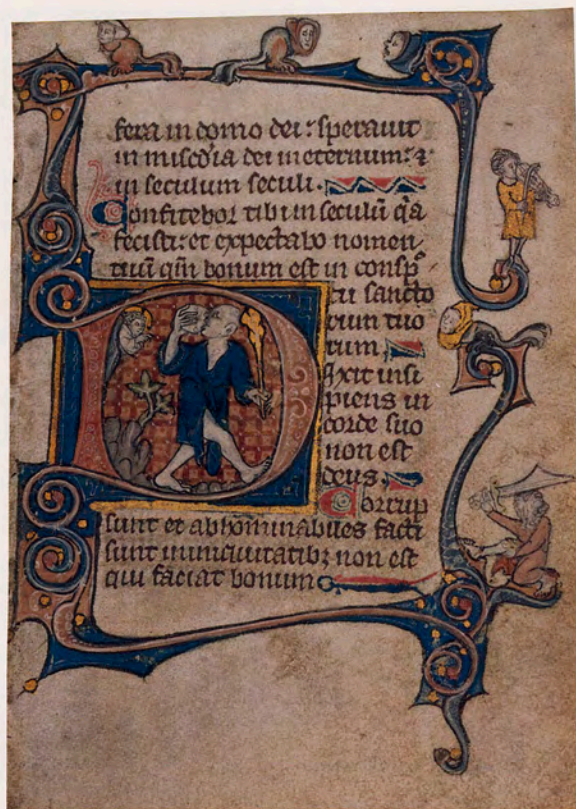 fera in domo dei : sperauit
in misc̃dia dei in eternum : ⁊
in seculum seculi .
Confitebor tibi in seculũ q̃a
fecisti : et expectabo nomen
tuũ qm̃ bonum est in consp̃
tu sancto
rum tuo
rum .
Dixit insi
piens in
corde suo
non est
deus .
Corrup
ti sunt et abhominabiles facti
sunt in iniquitatibꝫ non est
qui faciat bonum